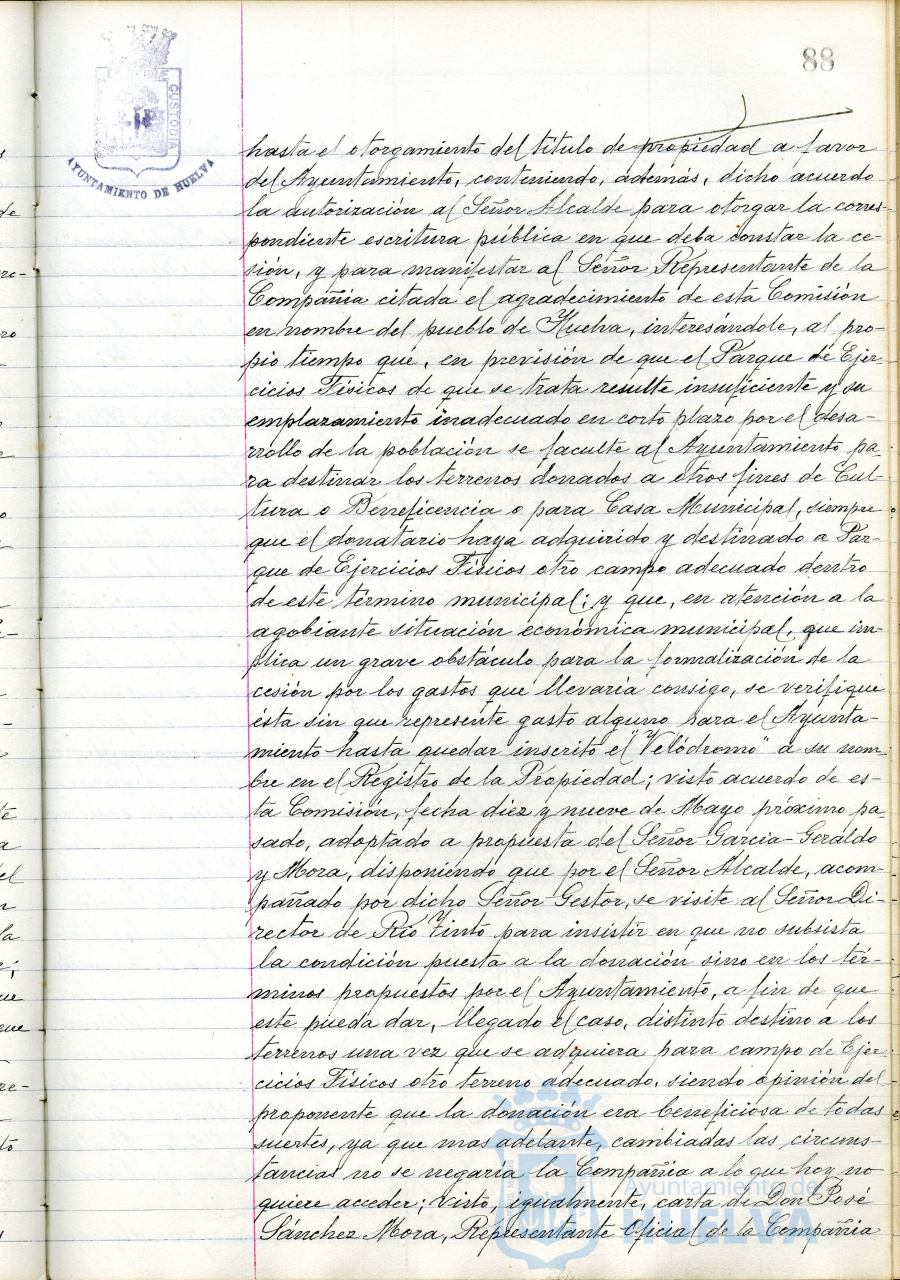 88
CUSTODIA
AYUNTAMIENTO DE HUELVA
hasta el otorgamiento del título de propiedad a favor
del Ayuntamiento, conteniendo, además, dicho acuerdo
la autorización al Señor Alcalde para otorgar la corres-
pondiente escritura pública en que deba constar la ce-
sión, y para manifestar al Señor Representante de la
Compañía citada el agradecimiento de esta Comisión
en nombre del pueblo de Huelva, interesándole, al pro-
pio tiempo que, en previsión de que el Parque de Ejer-
cicios Físicos de que se trata resulte insuficiente y su
emplazamiento inadecuado en corto plazo por el desa-
rrollo de la población se faculte al Ayuntamiento pa-
ra destinar los terrenos donados a otros fines de Cul-
tura o Beneficencia o para Casa Municipal, siempre
que el donatario haya adquirido y destinado a Par-
que de Ejercicios Físicos otro campo adecuado dentro
de este término municipal; y que, en atención a la
agobiante situación económica municipal, que im-
plica un grave obstáculo para la formalización de la
cesión por los gastos que llevaría consigo, se verifique
ésta sin que represente gasto alguno para el Ayunta-
miento hasta quedar inscrito el "Velódromo" a su nom-
bre en el Registro de la Propiedad; visto acuerdo de es-
ta Comisión, fecha diez y nueve de Mayo próximo pa-
sado, adoptado a propuesta del Señor Garcia-Geraldo
y Mora, disponiendo que por el Señor Alcalde, acom-
pañado por dicho Señor Gestor, se visite al Señor Di-
rector de Río Tinto para insistir en que no subsista
la condición puesta a la donación sino en los tér-
minos propuestos por el Ayuntamiento, a fin de que
este pueda dar, llegado el caso, distinto destino a los
terrenos una vez que se adquiera para campo de Ejer-
cicios Físicos otro terreno adecuado, siendo opinión del
proponente que la donación era beneficiosa de todas
suertes, ya que mas adelante, cambiadas las circuns-
tancias no se negaría la Compañía a lo que hoy no
quiere acceder; visto, igualmente, carta de Don José
Sánchez Mora, Representante Oficial de la Compañia
Ayuntamiento de
HUELVA